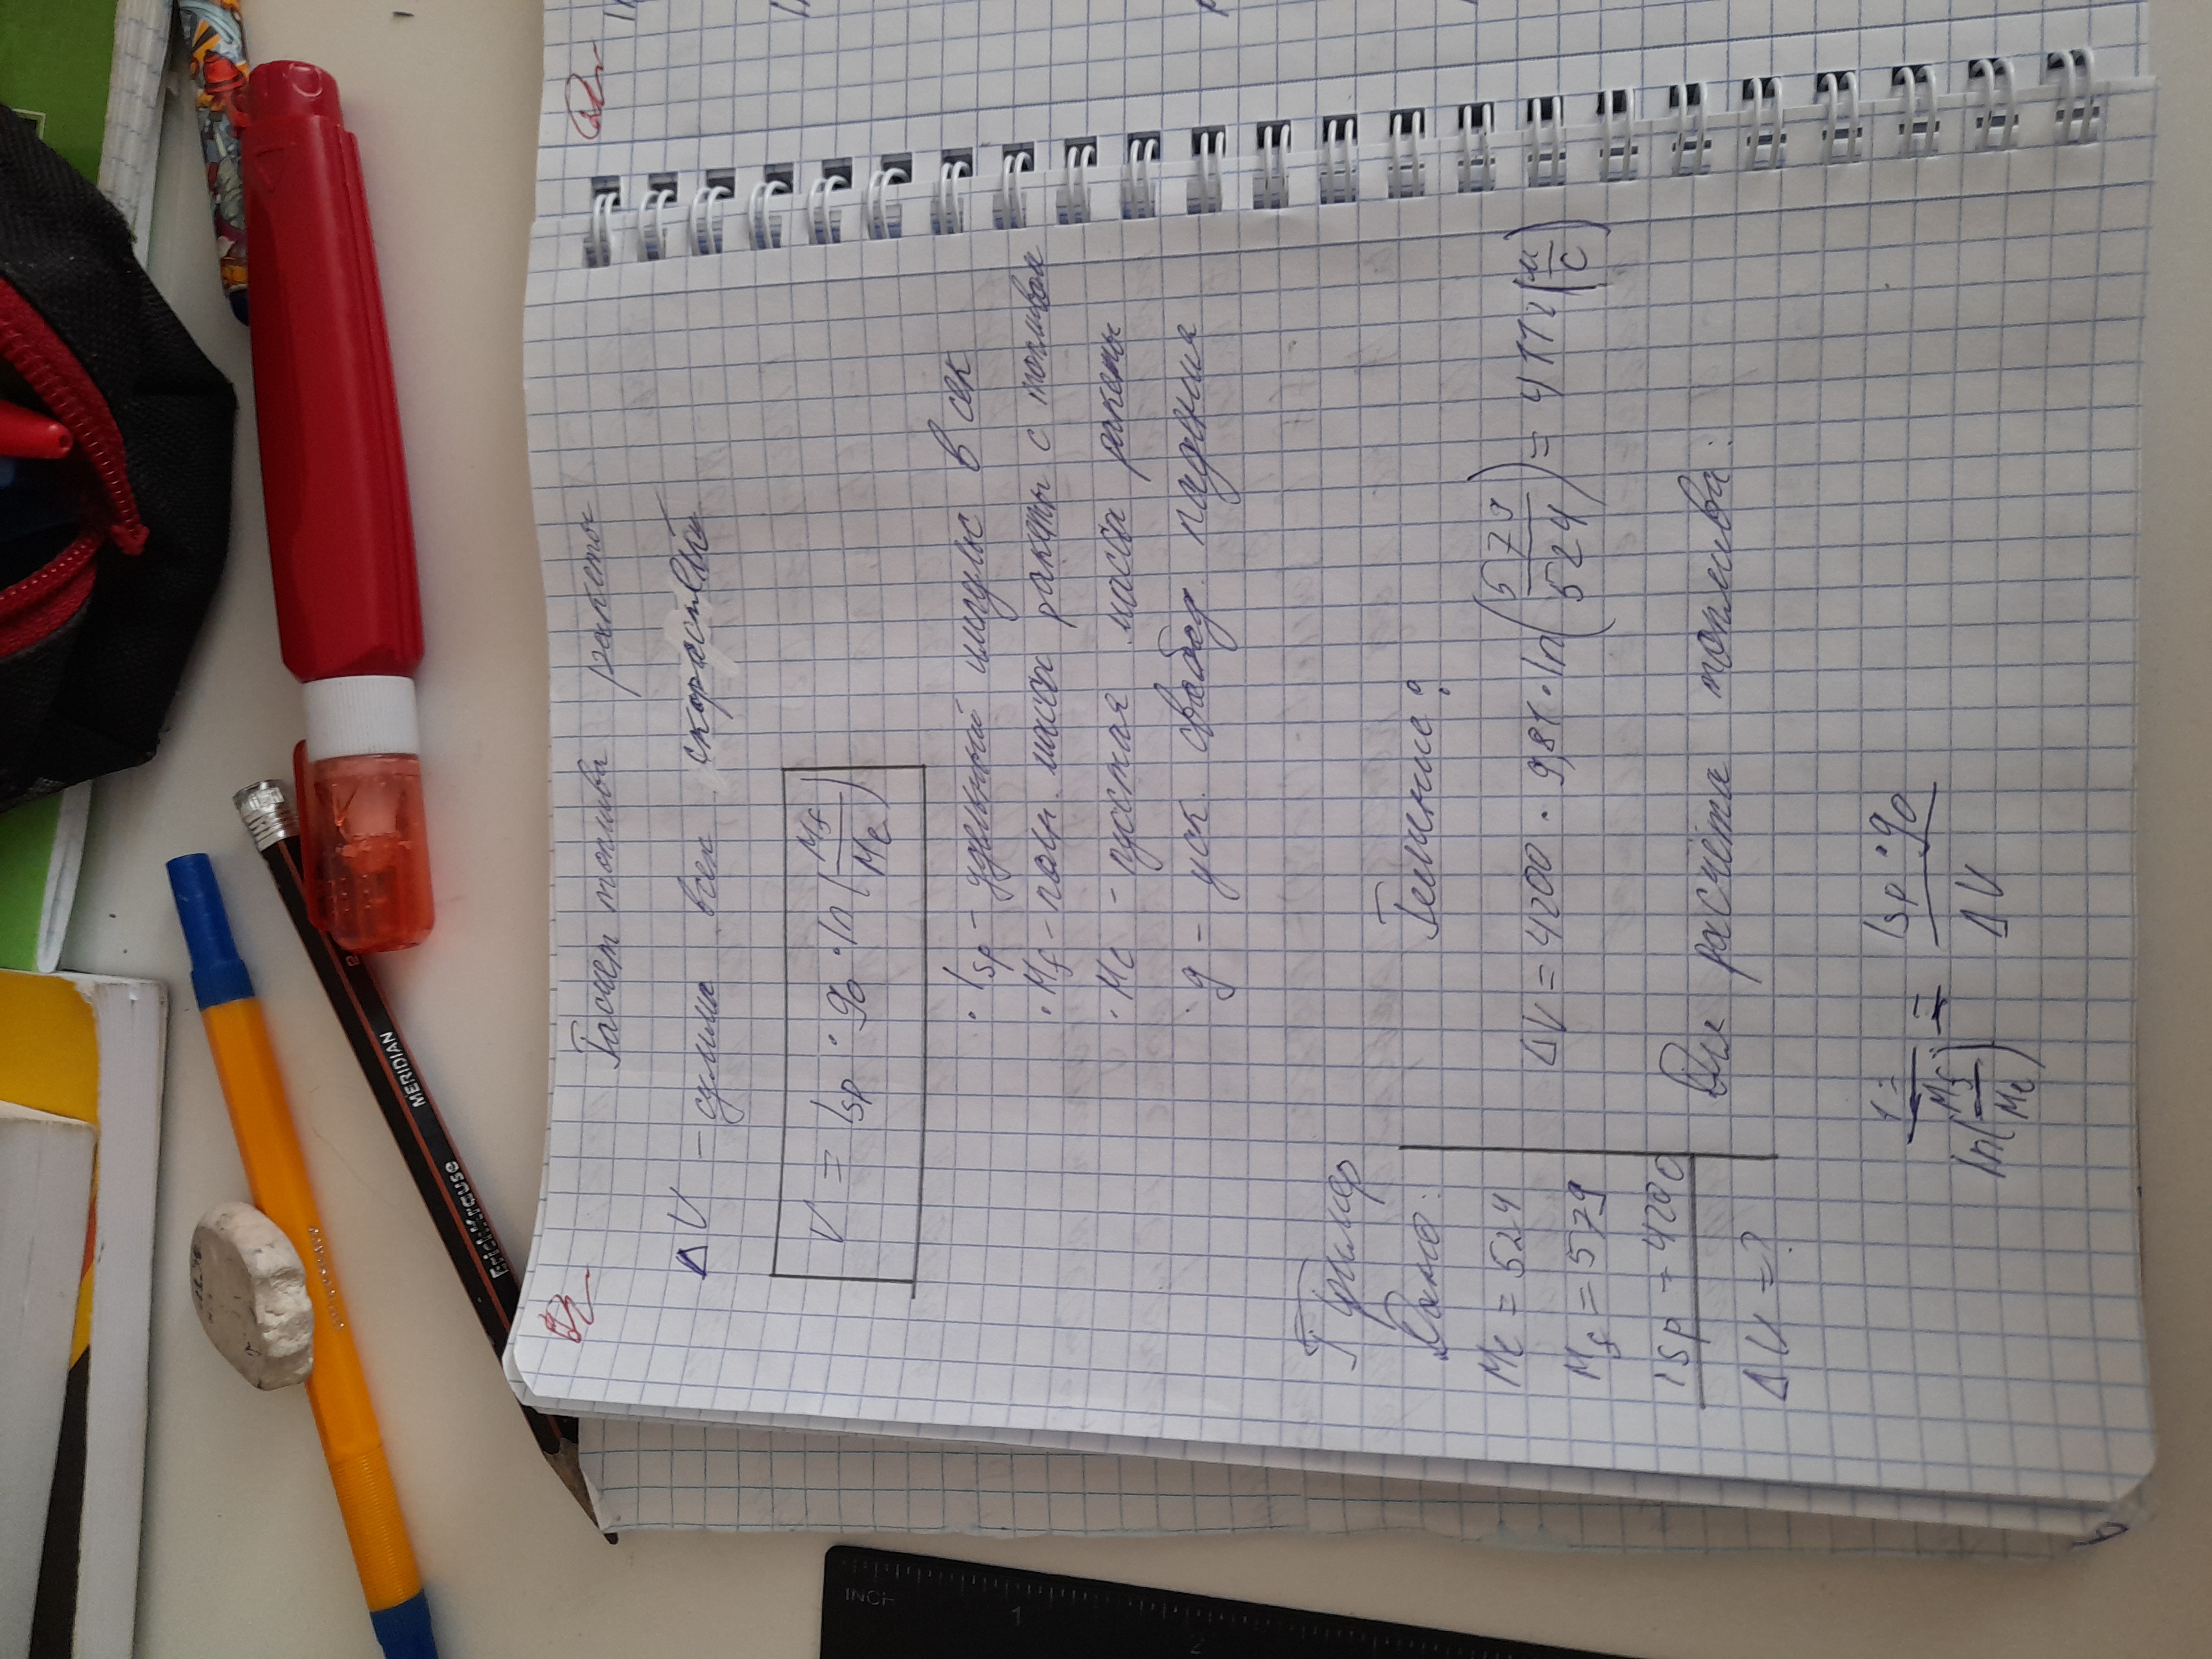 INCH
1
2
ErichKrause MERIDIAN
Расчет топлива ракеты
ΔV - сумма всех скоростей
V = Isp · g₀ · ln(Mf/Me)
· Isp - удельный импульс в сек
· Mf - полн. масса ракеты с топливом
· Me - пустая масса ракеты
· g - уск. свобод. падения
Пример
Дано: Решение:
Me = 524
ΔV = 4200 · 9,81 · ln(579/524) = 4112 (м/с)
Mf = 579
Isp = 4200
Для расчёта топлива:
ΔV = ?
1/ln(Mf/Me) = Isp · g₀/ΔV